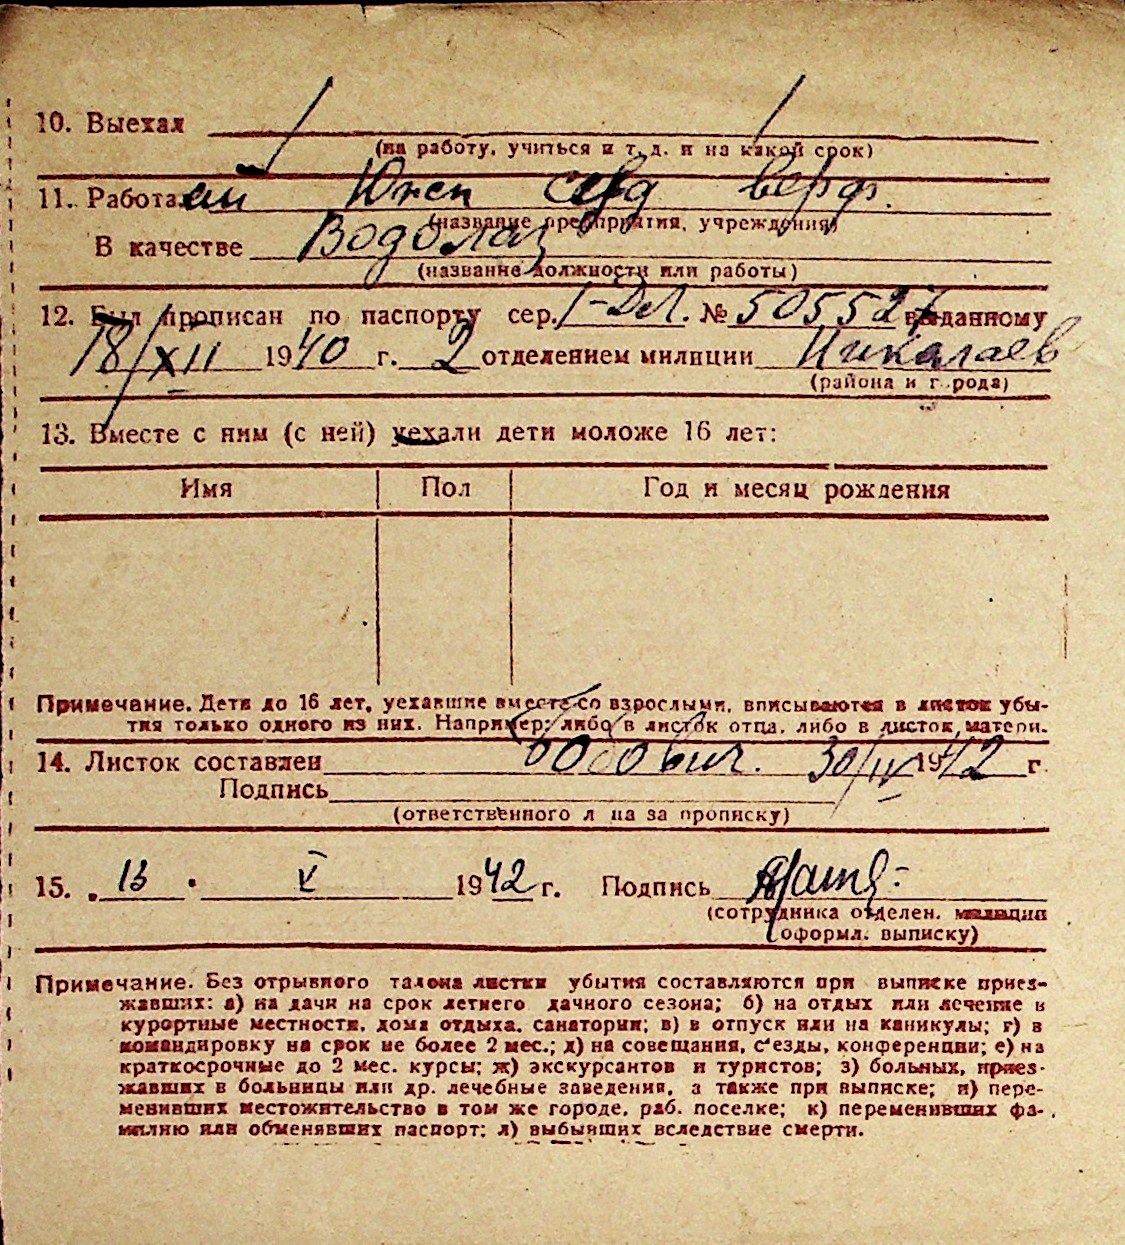 10. Выехал
(на работу, учиться и т. д. и на какой срок)
11. Работал
(название предприятия, учреждения)
В качестве Водолаз
(название должности или работы)
12. Был прописан по паспорту сер. № 505527 выданному
18/XII 1940 г. 2 отделением милиции Николаев
(района и г рода)
13. Вместе с ним (с ней) уехали дети моложе 16 лет:
Имя Пол Год и месяц рождения
Примечание. Дети до 16 лет, уехавшие вместе со взрослыми, вписываются в листок убы-
тия только одного из них. Например: либо в листок отца, либо в листок матери.
14. Листок составлен 30/IV 1942 г
Подпись
(ответственного л ца за прописку)
15. „13" V 1942 г. Подпись
(сотрудника отделен. милиции
оформл. выписку)
Примечание. Без отрывного талона листки убытия составляются при выписке приез-
жавших: а) на дачи на срок летнего дачного сезона; б) на отдых или лечение в
курортные местности, дома отдыха, санатории; в) в отпуск или на каникулы; г) в
командировку на срок не более 2 мес.; д) на совещания, с'езды, конференции; е) на
краткосрочные до 2 мес. курсы; ж) экскурсантов и туристов; з) больных, приез-
жавших в больницы или др. лечебные заведения, а также при выписке; и) пере-
менивших местожительство в том же городе, раб. поселке; к) переменивших фа-
милию или обменявших паспорт; л) выбывших вследствие смерти.